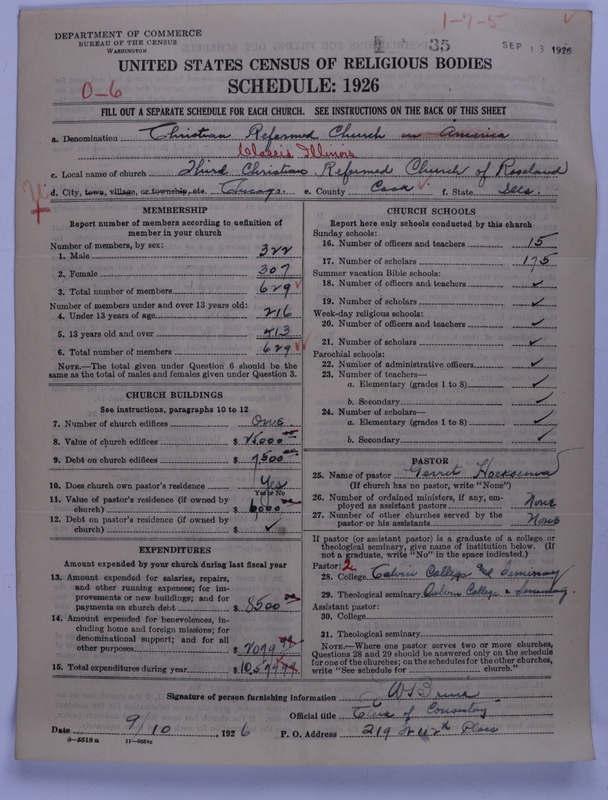 1-7-5
DEPARTMENT OF COMMERCE
BUREAU OF THE CENSUS
WASHINGTON
35
SEP 13 1926
UNITED STATES CENSUS OF RELIGIOUS BODIES
SCHEDULE: 1926
0-6
FILL OUT A SEPARATE SCHEDULE FOR EACH CHURCH. SEE INSTRUCTIONS ON THE BACK OF THIS SHEET
a. Denomination Christian Reformed Church in America
Classis Illinois
c. Local name of church Third Christian Reformed Church of Roseland
d. City, town, village, or township, etc. Chicago. e. County Cook f. State Ills.
MEMBERSHIP
Report number of members according to definition of member in your church
Number of members, by sex:
1. Male 322
2. Female 307
3. Total number of members 629
Number of members under and over 13 years old:
4. Under 13 years of age 216
5. 13 years old and over 413
6. Total number of members 629
NOTE.—The total given under Question 6 should be the same as the total of males and females given under Question 3.
CHURCH BUILDINGS
See instructions, paragraphs 10 to 12
7. Number of church edifices One.
8. Value of church edifices $
9. Debt on church edifices $ 7,500
10. Does church own pastor's residence? Yes
Yes or No
11. Value of pastor's residence (if owned by church) $ 6,000
12. Debt on pastor's residence (if owned by church) $ ✓
EXPENDITURES
Amount expended by your church during last fiscal year
13. Amount expended for salaries, repairs, and other running expenses; for improvements or new buildings; and for payments on church debt $ 8500
14. Amount expended for benevolences, including home and foreign missions; for denominational support; and for all other purposes $ 2079
15. Total expenditures during year $ 10,579
CHURCH SCHOOLS
Report here only schools conducted by this church
Sunday schools:
16. Number of officers and teachers 15
17. Number of scholars 175
Summer vacation Bible schools:
18. Number of officers and teachers ✓
19. Number of scholars ✓
Week-day religious schools:
20. Number of officers and teachers ✓
21. Number of scholars ✓
Parochial schools:
22. Number of administrative officers ✓
23. Number of teachers—
a. Elementary (grades 1 to 8) ✓
b. Secondary ✓
24. Number of scholars—
a. Elementary (grades 1 to 8) ✓
b. Secondary ✓
PASTOR
25. Name of pastor Gerrit Hoeksema
(If church has no pastor, write "None")
26. Number of ordained ministers, if any, employed as assistant pastors None
27. Number of other churches served by the pastor or his assistants None
If pastor (or assistant pastor) is a graduate of a college or theological seminary, give name of institution below. (If not a graduate, write "No" in the space indicated.)
Pastor: 2
28. College Calvin College and Seminary
29. Theological seminary Calvin College & Seminary.
Assistant pastor:
30. College
31. Theological seminary
NOTE.—Where one pastor serves two or more churches, Questions 28 and 29 should be answered only on the schedule for one of the churches; on the schedules for the other churches, write "See schedule for church."
Signature of person furnishing information
Official title Clerk of Consistory
Date 9/10, 1926 P. O. Address 219 W 112th Place
8-5518a